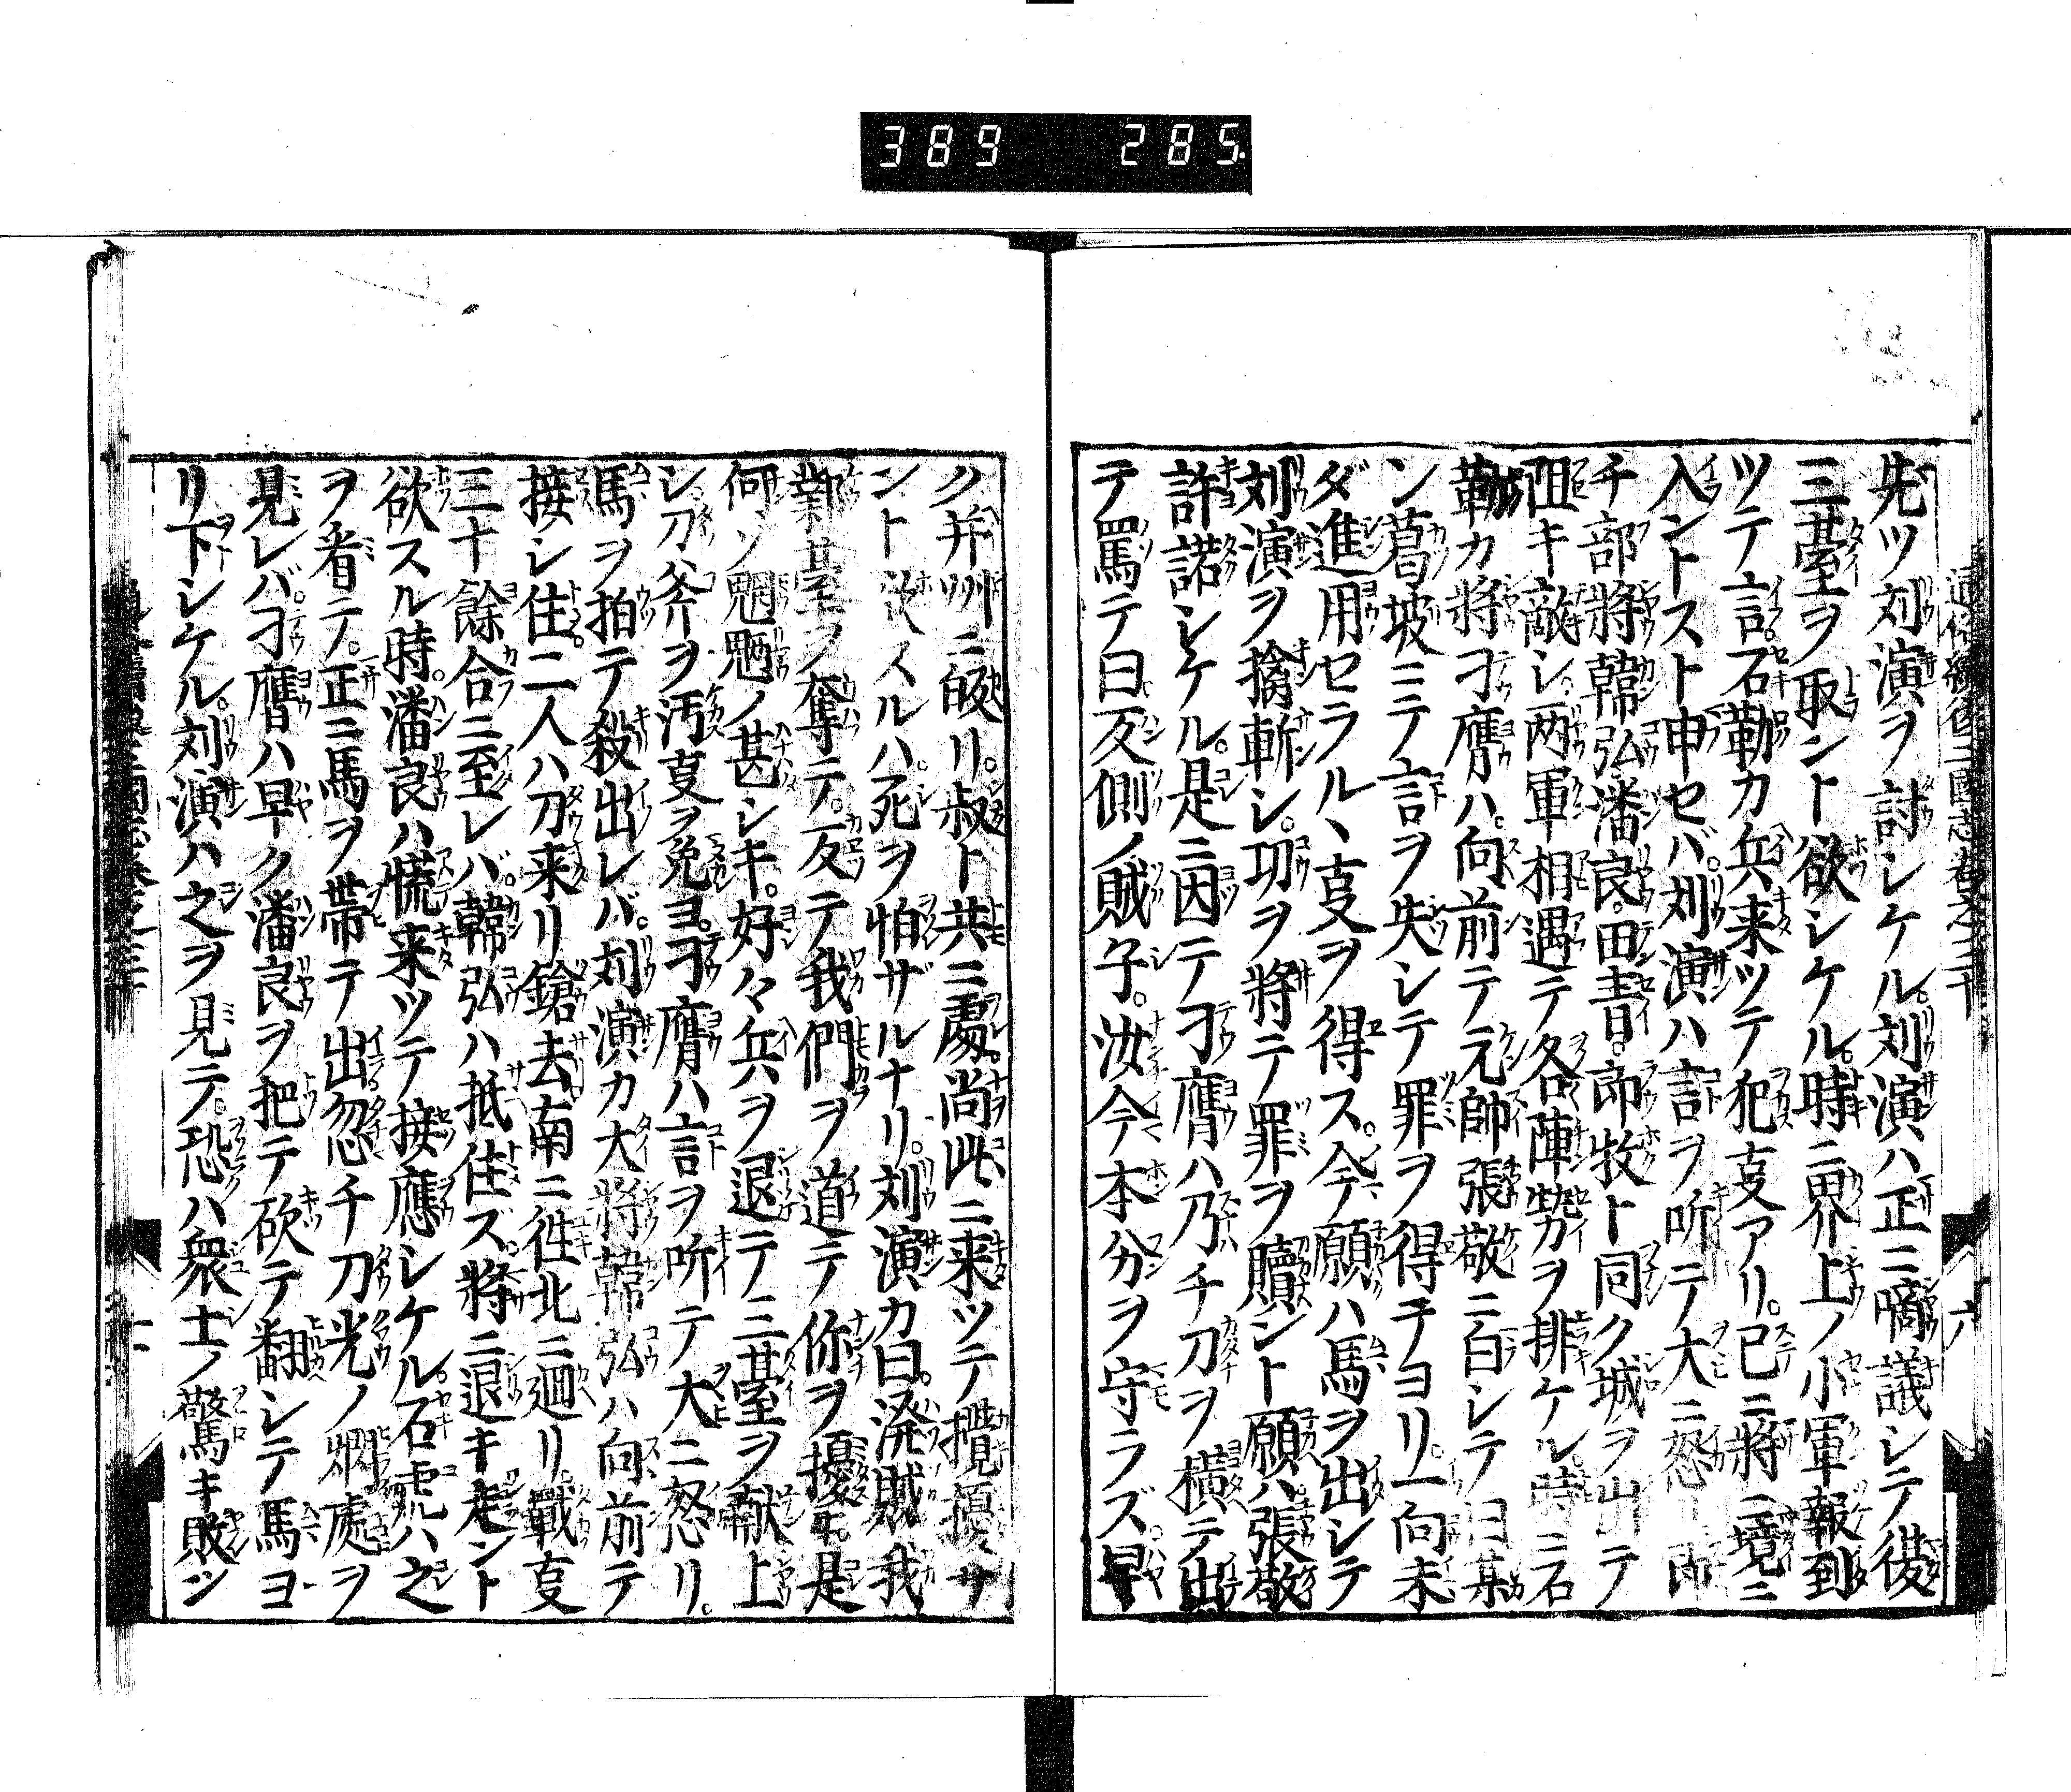 389 285
先ツ刘演ヲ討シケル。刘演ハ正ニ啇議シテ從
三䑓ヲ取ント欲シケル。時ニ界上ノ小軍報到
ツテ言。石勒カ兵来ツテ犯𠮷アリ。已ニ將ニ境ニ
入ントスト申セバ。刘演ハ言ヲ听テ大ニ怒
チ部將韓弘潘良。田青。郎牧ト同ク城ヲ出テ
阻キ敵シ。两軍相遇テ各陣勢ヲ排ケル。時ニ石
勒カ將刁膺ハ。向前テ元帥張敬ニ白シテ曰某
ン葛坡ニテ言ヲ失シテ罪ヲ得チヨリ。一向未
ダ進用セラル、𠮷ヲ得ス。今願ハ馬ヲ出シテ
刘演ヲ擒斬シ。功ヲ將テ罪ヲ贖ント願ハ。張敬
許諾シケル。是ニ因テ刁膺ハ乃チ刀ヲ橫テ出
テ罵テ曰。反側ノ賊子。汝今本分ヲ守ラズ。早
ク并州ニ皈リ。叔ト共ニ處。尚此ニ来ツテ攪擾サ
ント欲スルハ。死ヲ怕ザルナリ。刘演カ曰。潑賊我
鄴䑓ヲ奪テ。反テ我們ヲ道テ你ヲ擾キ。是
何ソ魍魎ノ甚シキ。好々兵ヲ退テ三䑓ヲ献上
シ。刀斧ヲ汚𠮷ヲ免ヨ。刁膺ハ言ヲ听テ大ニ怒リ。
馬ヲ拍テ殺出レバ。刘演カ大將韓弘ハ向前テ
接シ住。二人ハ刀来リ鎗去南ニ徃北ニ廻リ。戰𠮷
三十餘合ニ至レバ。韓弘ハ抵住ズ。將ニ退キ走ント
欲スル時。潘良ハ慌来ツテ接應シケル。石虎ハ之
ヲ看テ。正ニ馬ヲ帶テ出。忽チ刀光ノ爛處ヲ
見レバ。刁膺ハ早ク潘良ヲ把テ砍テ翻シテ馬ヨ
リ下シケル。刘演ハ之ヲ見テ。恐ハ衆士ノ驚キ敗ン